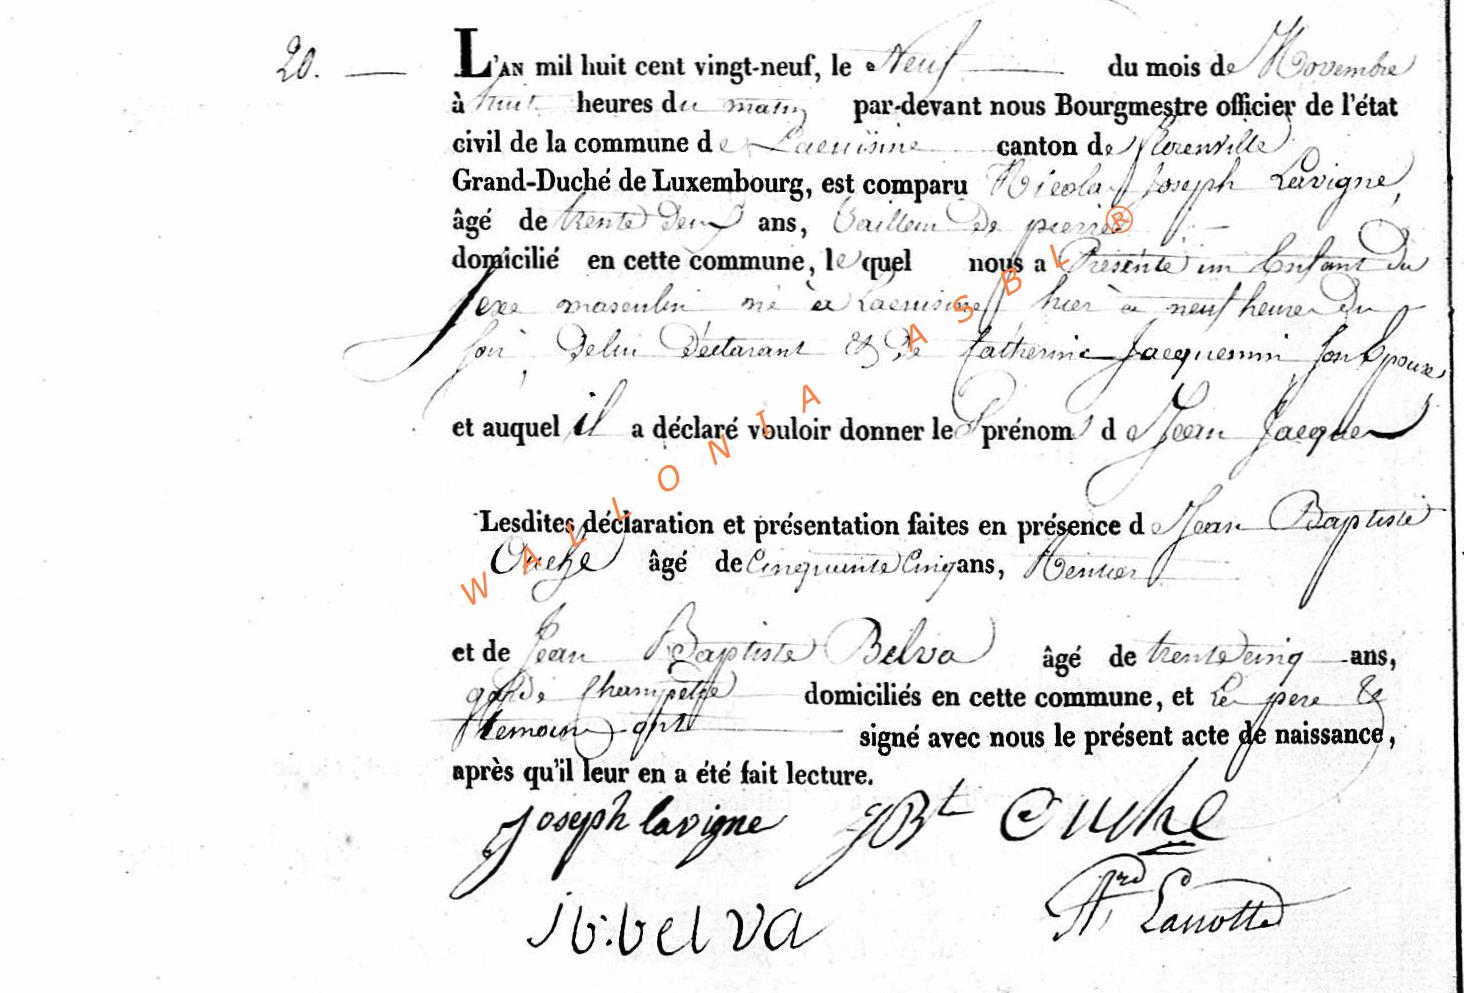 20. L'AN mil huit cent vingt-neuf, le Neuf du mois de Novembre
à huit heures du matin par-devant nous Bourgmestre officier de l'état
civil de la commune de Lacuisine canton de Florenville
Grand-Duché de Luxembourg, est comparu Nicolas Joseph Lavigne,
âgé de trente deux ans, tailleur de pierre
domicilié en cette commune, lequel nous a Présenté un Enfant du
sexe masculin né à Lacuisine hier à neuf heures du
soir, de lui déclarant & de Catherine Jacquemin son Epouse,
et auquel il a déclaré vouloir donner les prénoms de Jean Jacques
Lesdites déclaration et présentation faites en présence de Jean Baptiste
Ouchê âgé de Cinquante Cinq ans, Rentier
et de Jean Baptiste Belva âgé de trente cinq ans,
garde Champêtre domiciliés en cette commune, et Le père &
temoins ont signé avec nous le présent acte de naissance,
après qu'il leur en a été fait lecture.
Joseph lavigne JBt Ouché
jb:belva Lanotte
WALLONIA ASBL ®